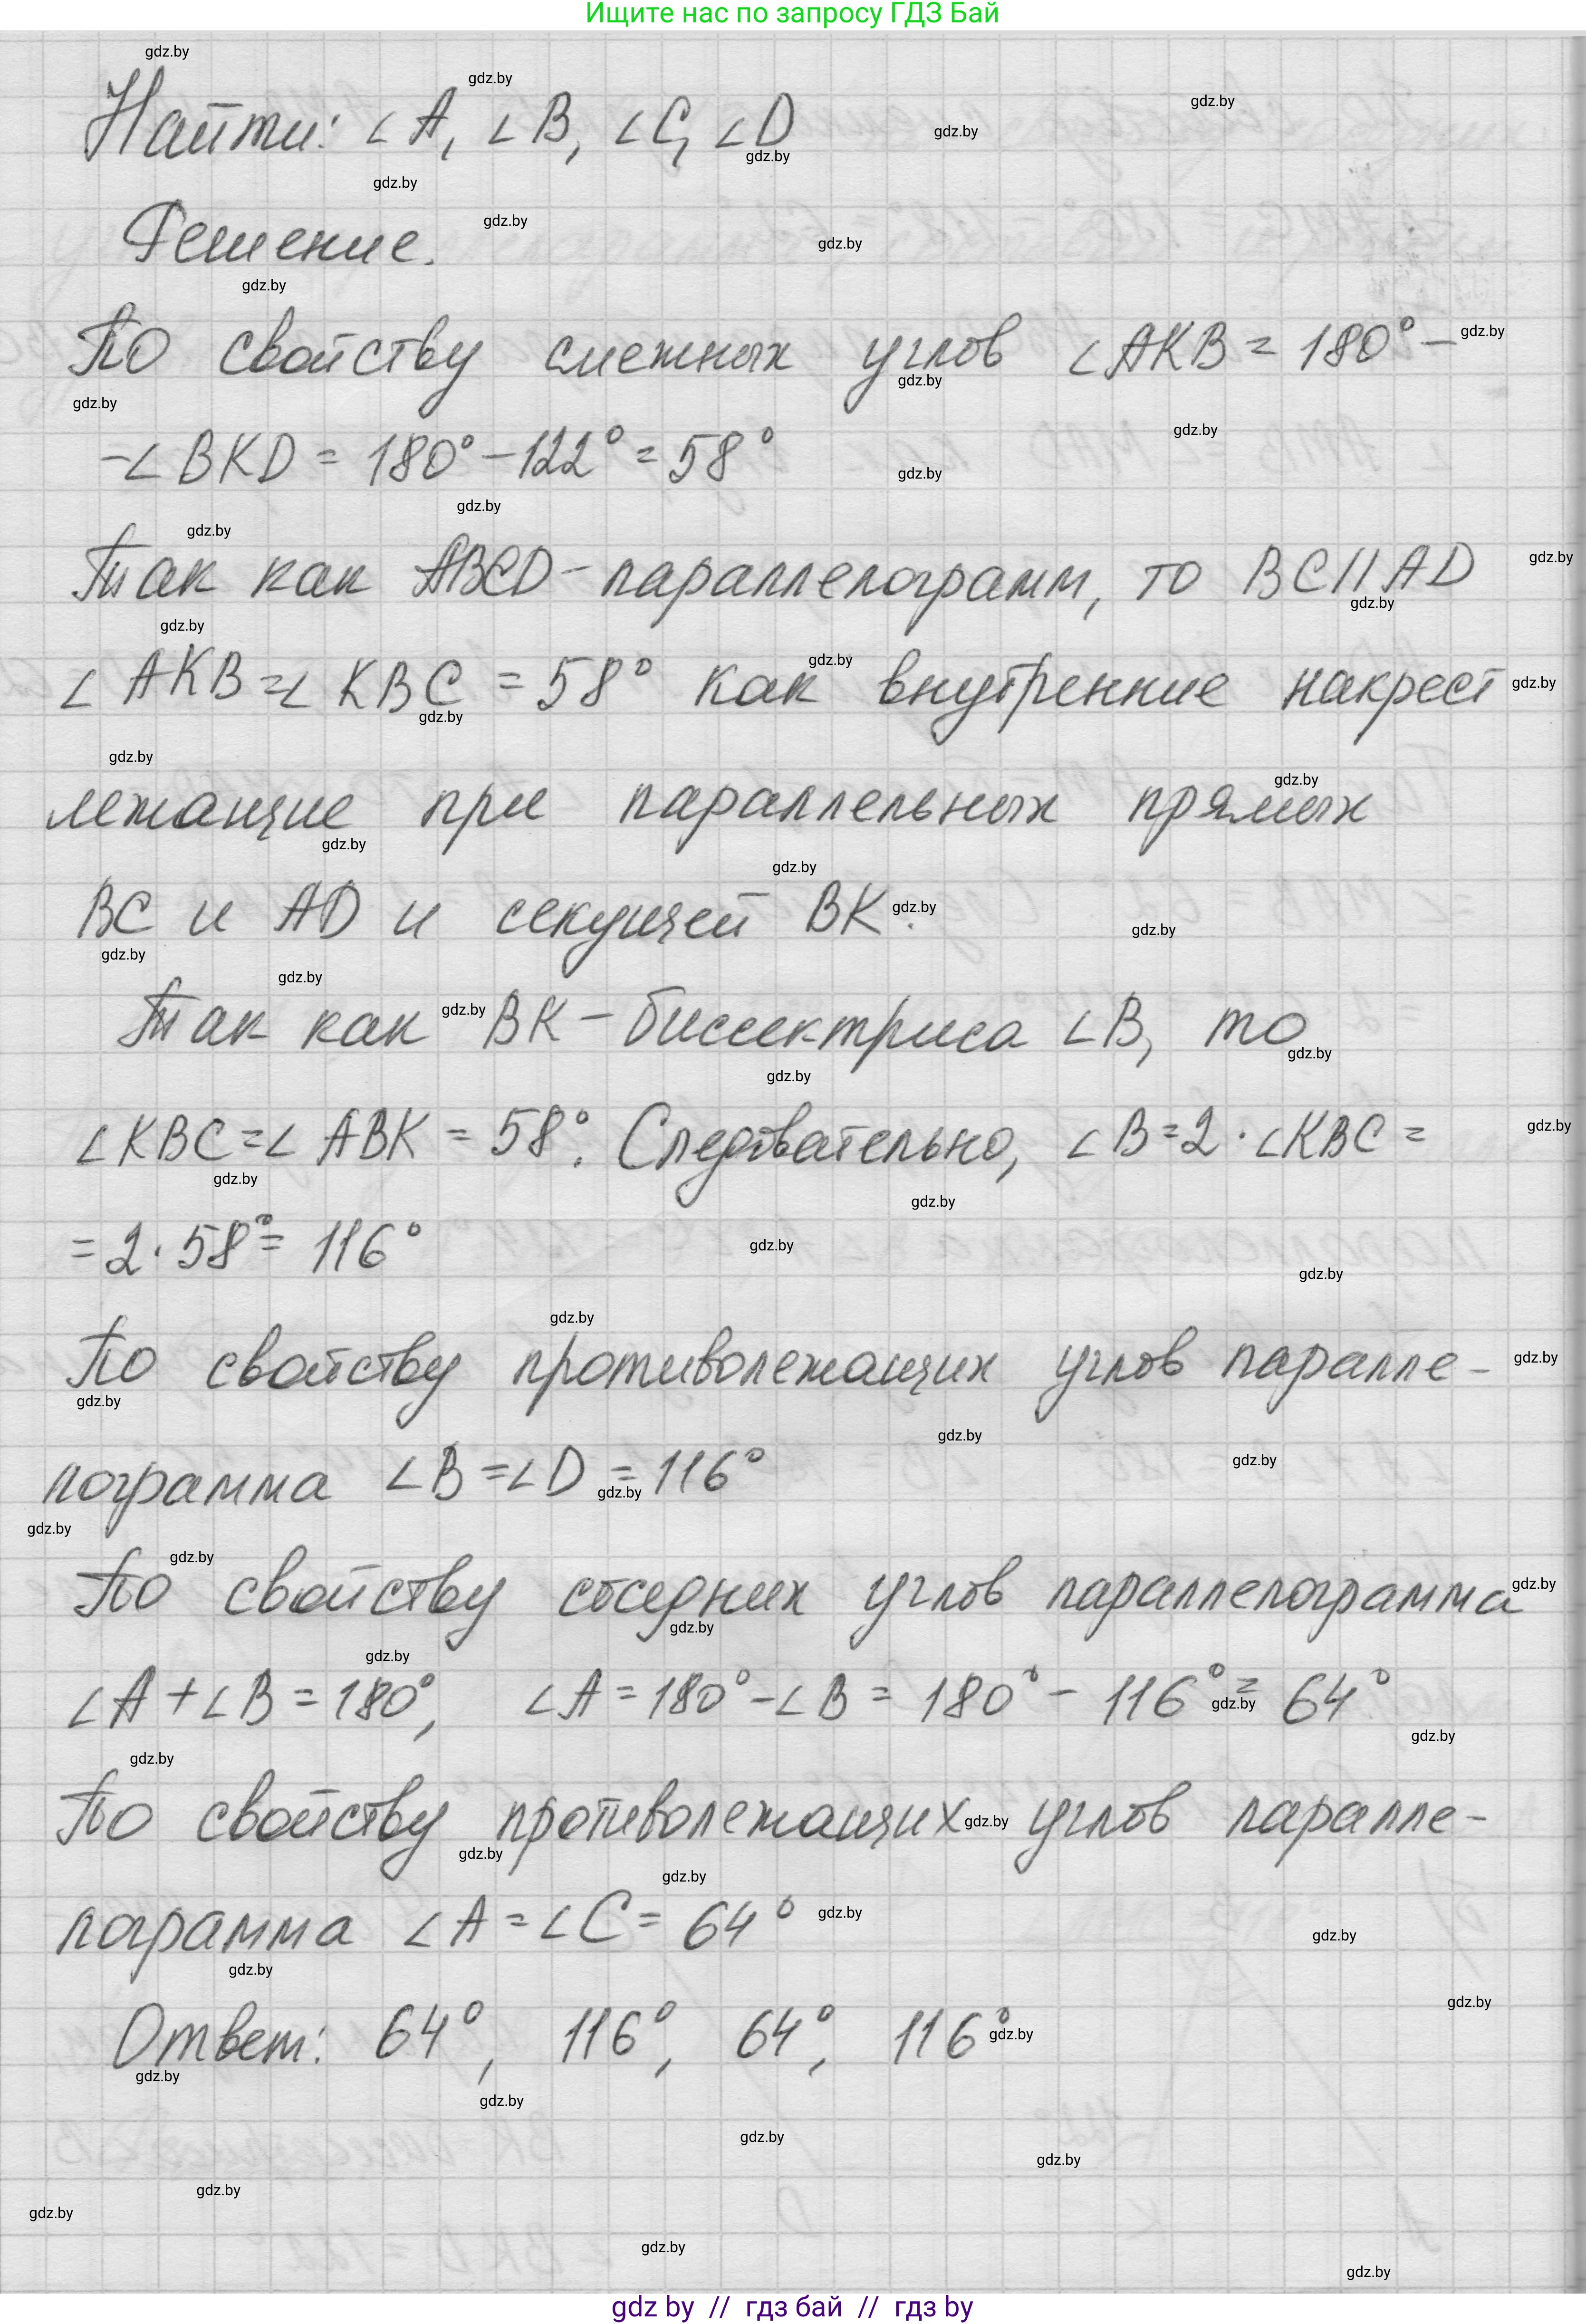 Ищите нас по запросу ГДЗ Бай
Найти: ∠A, ∠B, ∠C, ∠D
Решение.
По свойству смежных углов ∠AKB = 180° −
−∠BKD = 180° − 122° = 58°
Так как ABCD - параллелограмм, то BC || AD
∠AKB = ∠KBC = 58° как внутренние накрест
лежащие при параллельных прямых
BC и AD и секущей BK.
Так как BK - биссектриса ∠B, то
∠KBC = ∠ABK = 58°. Следовательно, ∠B = 2 · ∠KBC =
= 2 · 58° = 116°
По свойству противолежащих углов паралле-
лограмма ∠B = ∠D = 116°
По свойству соседних углов параллелограмма
∠A + ∠B = 180°, ∠A = 180° − ∠B = 180° − 116° = 64°
По свойству противолежащих углов паралле-
лограмма ∠A = ∠C = 64°
Ответ: 64°, 116°, 64°, 116°
gdz by // гдз бай // гдз by